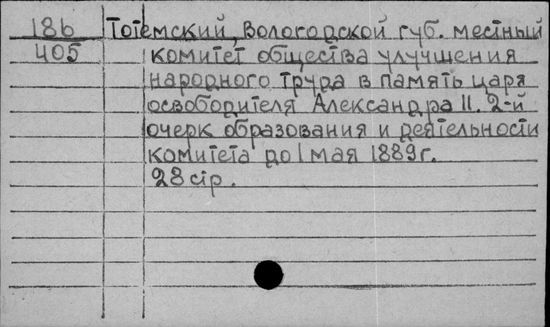 186 Тотемский, Вологодской губ. местный
405 комитет общества улучшения
народного труда в память царя
освободителя Александра II. 2-й
очерк образования и деятельности
комитета до 1 мая 1889 г.
28 стр.